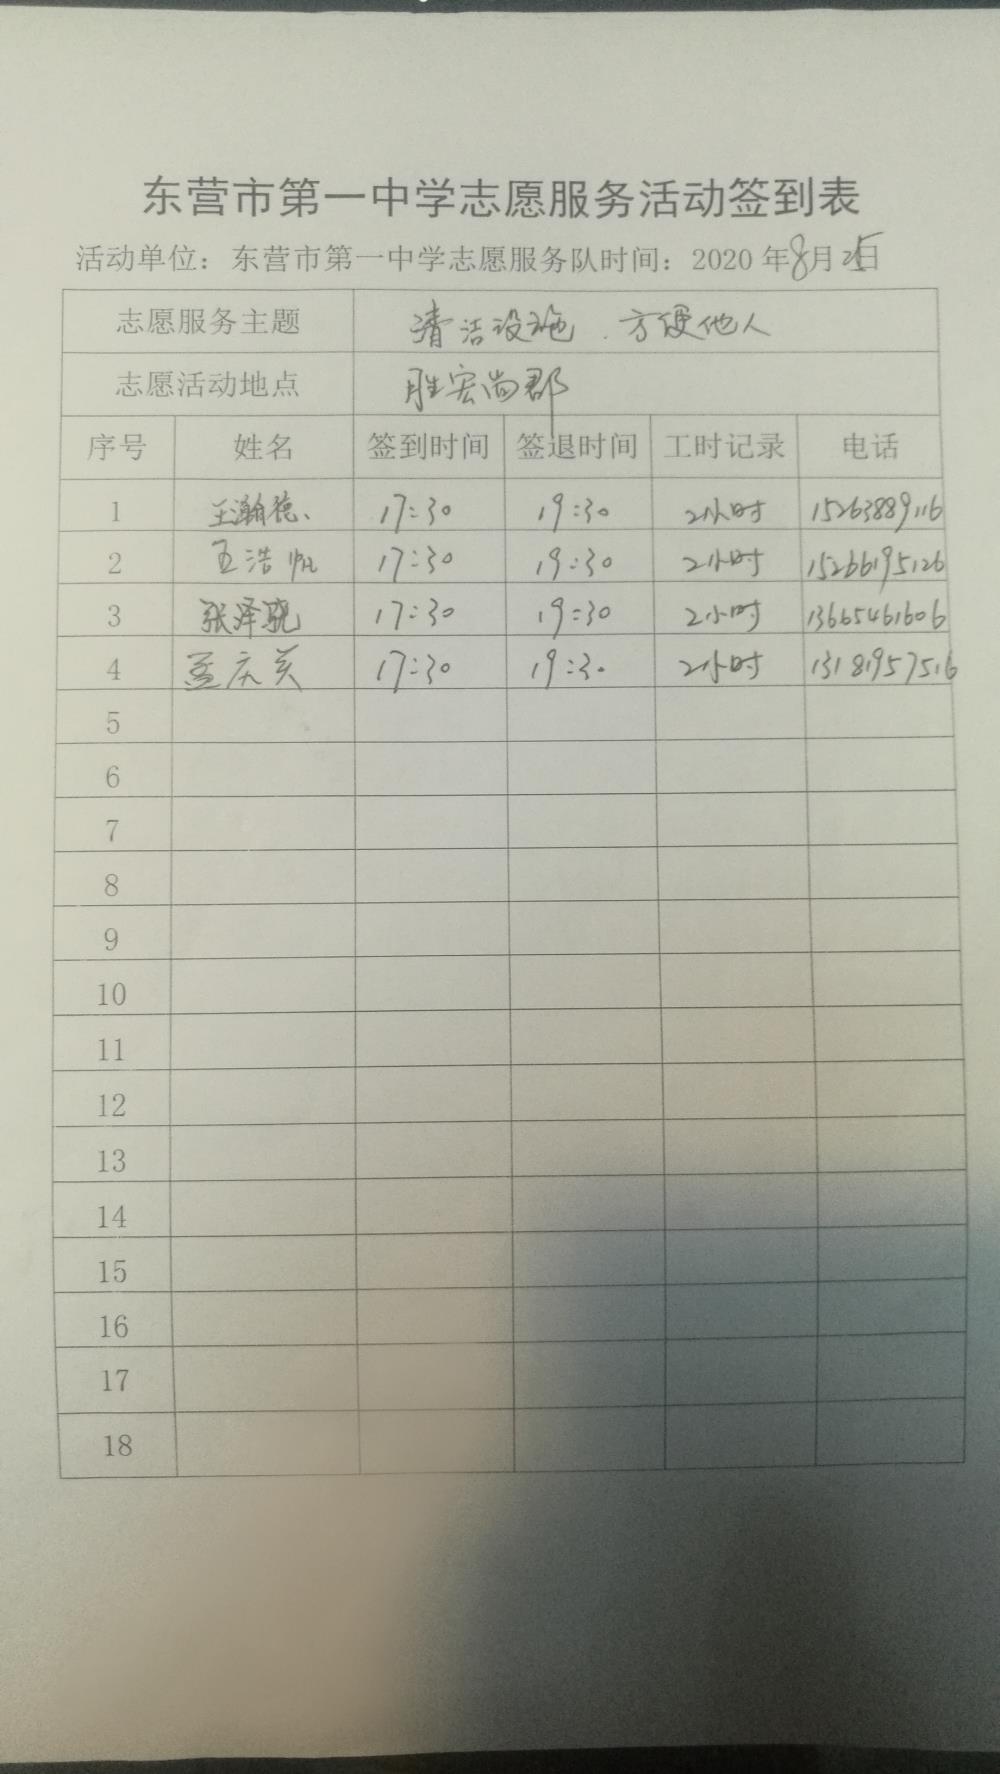 东营市第一中学志愿服务活动签到表
活动单位：东营市第一中学志愿服务队时间：2020 年8月25日
志愿服务主题 清洁设施．方便他人
志愿活动地点 胜宏尚郡
序号 姓名 签到时间 签退时间 工时记录 电话
1 王瀚德、 17:30 19:30 2小时 15263889116
2 王浩帆 17:30 19:30 2小时 15266195126
3 张泽骁 17:30 19:30 2小时 13665461606
4 孟庆 17:30 19:30 2小时 13181957516
5
6
7
8
9
10
11
12
13
14
15
16
17
18